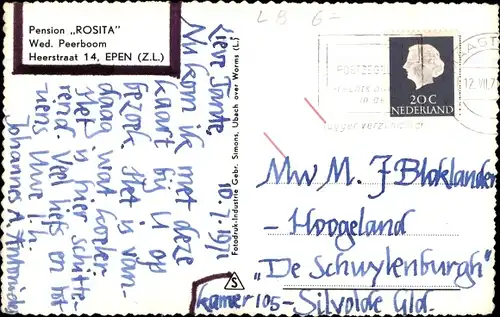 L B 6-
Pension „ROSITA"
Wed. Peerboom
Heerstraat 14, EPEN (Z.L.)
10-7-1971
Lieve Tante,
Nu kom ik met deze
kaart bij U op
bezoek. Het is van-
daag wat koeler.
Het is hier schitte-
rend. Veel liefs en tot
ziens Uwe l.h.
Johannes A.
Fotodruk-Industrie Gebr. Simons, Ubach over Worms (L.)
S
POSTZEGEL
RECHTS
IN DE
20 C
NEDERLAND
12.VII.7
Mw M. J Bloklander
- Hoogeland
„De Schwylenburgh"
kamer 105 - Silvolde Gld.